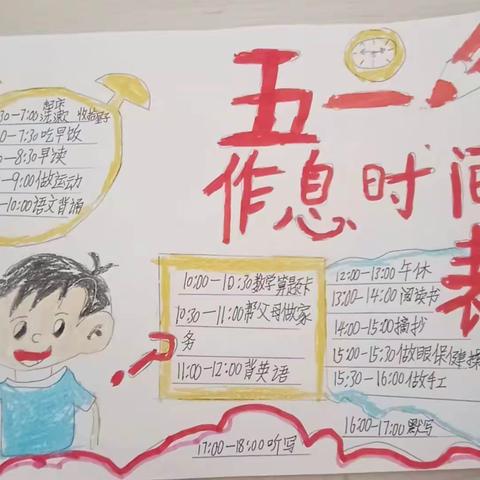 五一
作息时间表
30-7:00 起床 洗漱 收拾
0-7:30吃早饭
0-8:30早读
-9:00做运动
-10:00语文背诵
10:00-10:30数学算题卡
10:30-11:00帮父母做家
务
11:00-12:00背英语
12:00-13:00午休
13:00-14:00阅读书
14:00-15:00摘抄
15:00-15:30做眼保健操
15:30-16:00做手工
16:00-17:00默写
17:00-18:00听写